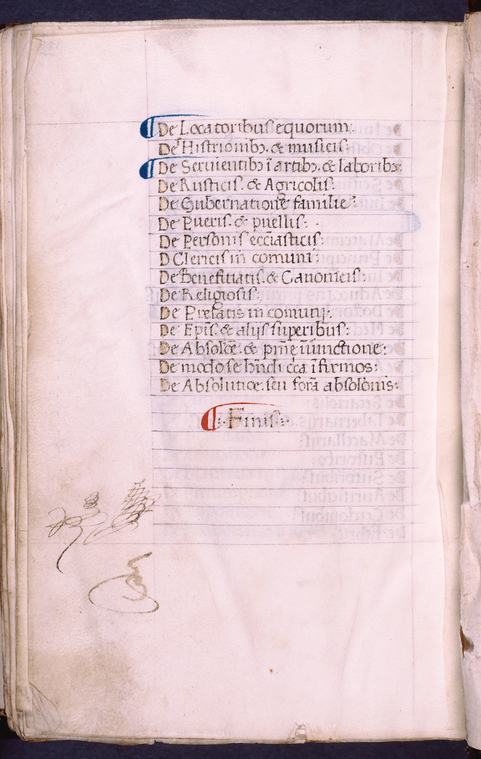 De Locatoribus equorum:
De Histrionibꝫ. & musicis:
De Seruientibꝫ ī artibꝫ. & laboribꝫ:
De Rusticis. & Agricolis:
De Gubernatione familie:
De Pueris. & puellis:
De Personis ecc̄iasticis:
D Clericis in comuni:
De Benefitiatis. & Canonicis:
De Religiosis:
De Prelatis in comuni:
De Ep̄is. & alijs superibus:
De Absolōe. & pn̄ie iniunctione:
De modo se hn̄di c̄ca īfirmos:
De Absolutiōe. seu forā absolōnis:
Finis